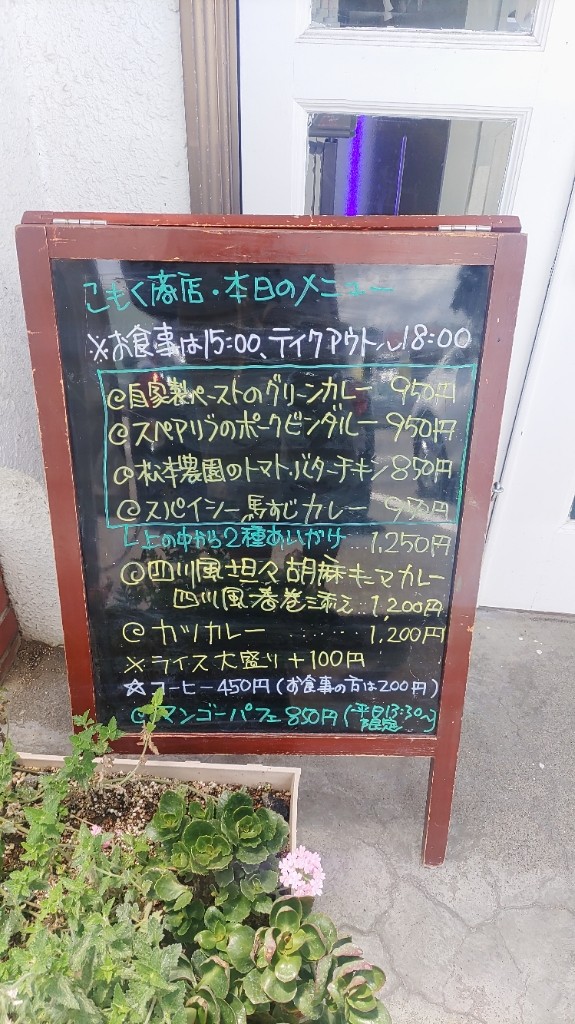 こもく商店・本日のメニュー
※お食事は15:00、テイクアウト〜18:00
@自家製ペーストのグリーンカレー 950円
@スペアリブのポークビンダルー 950円
@松本農園のトマトバターチキン 850円
@スパイシー馬すじカレー 950円
└上の中から2種あいがけ…1,250円
@四川風坦々胡麻キーマカレー
四川風春巻添え…1,200円
@カツカレー ……1,200円
※ライス大盛り+100円
☆コーヒー450円(お食事の方は200円)
@マンゴーパフェ850円(平日13:30〜限定)